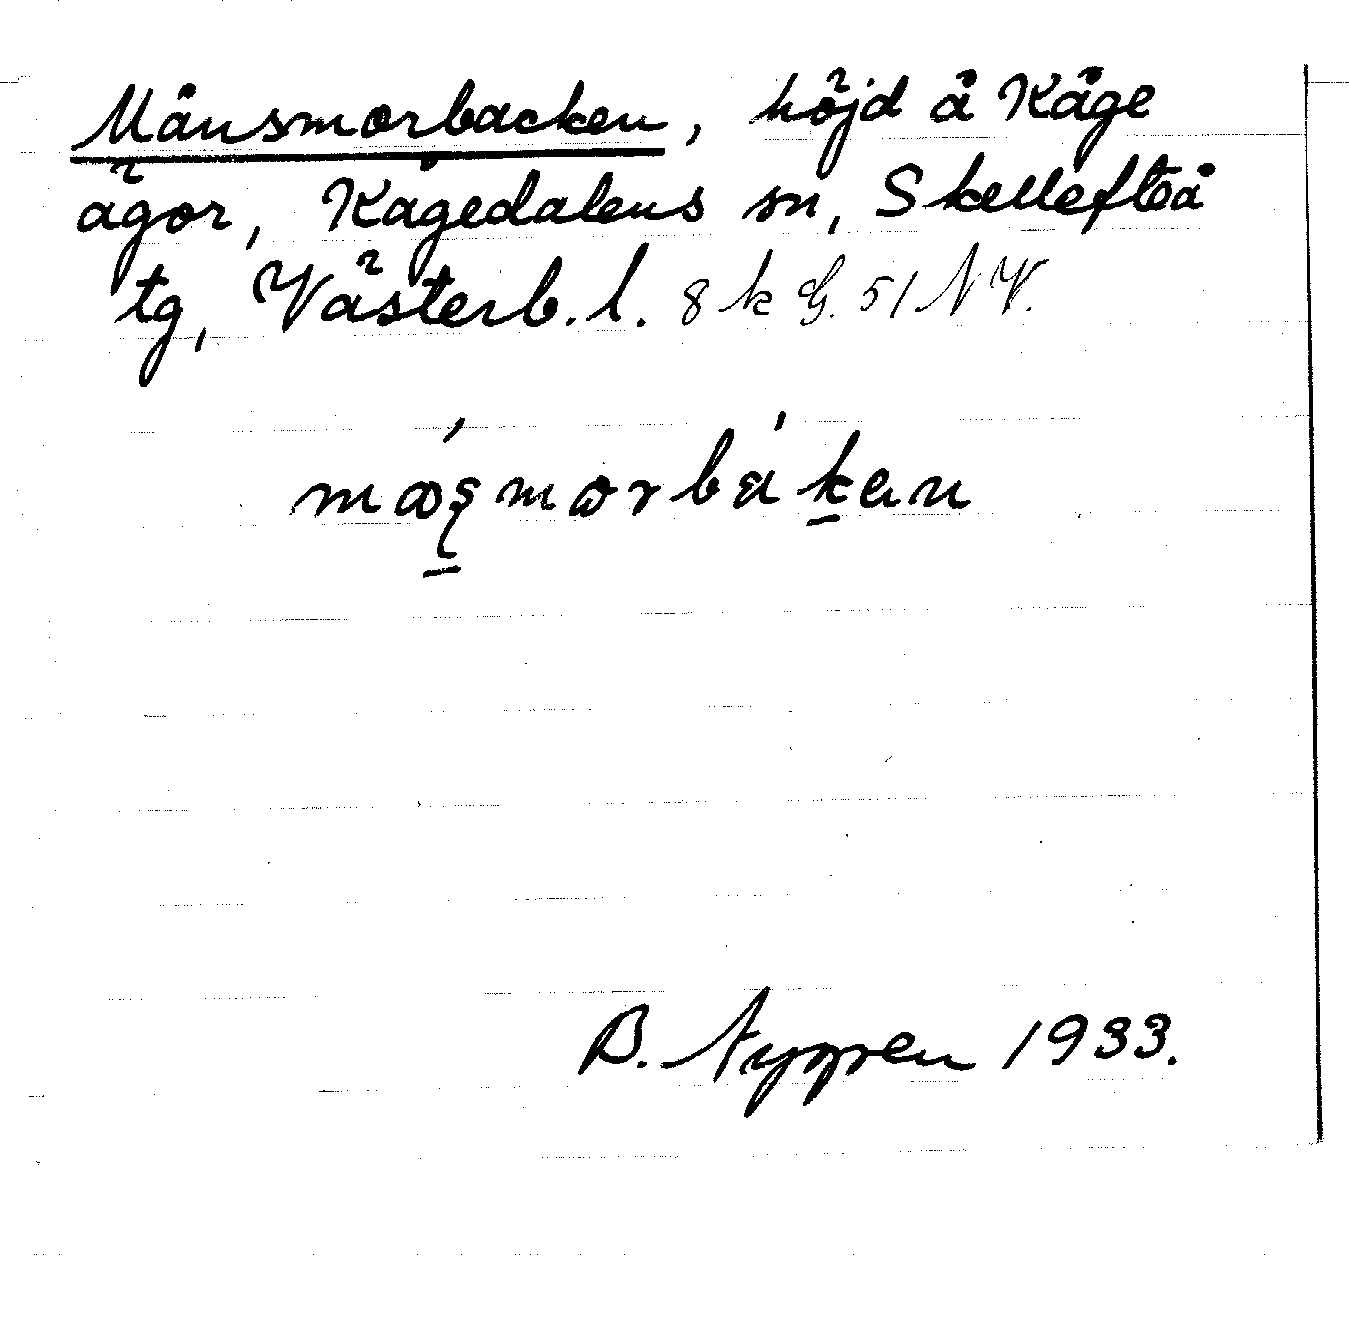 Månsmorbacken, höjd å Kåge
ägor, Kågedalens sn, Skellefteå
tg, Västerb. l. 8 k G. 51 NV.
B. Nygren 1933.